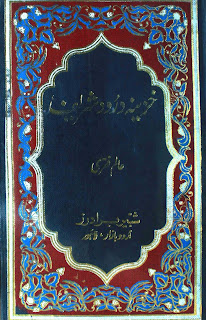 خزینہ درود شریف
عالم فقری
شبیر برادرز
اردو بازار ، لاہور